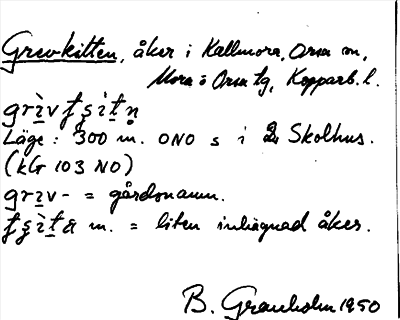 Grevkitten, åker i Kallmora, Orsa sn,
Mora o Orsa tg, Kopparb. l.
Läge: 300 m. ONO s i Skolhus.
(KG 103 NO)
= gårdsnamn.
m. = liten inhägnad åker.
B. Granholm 1950